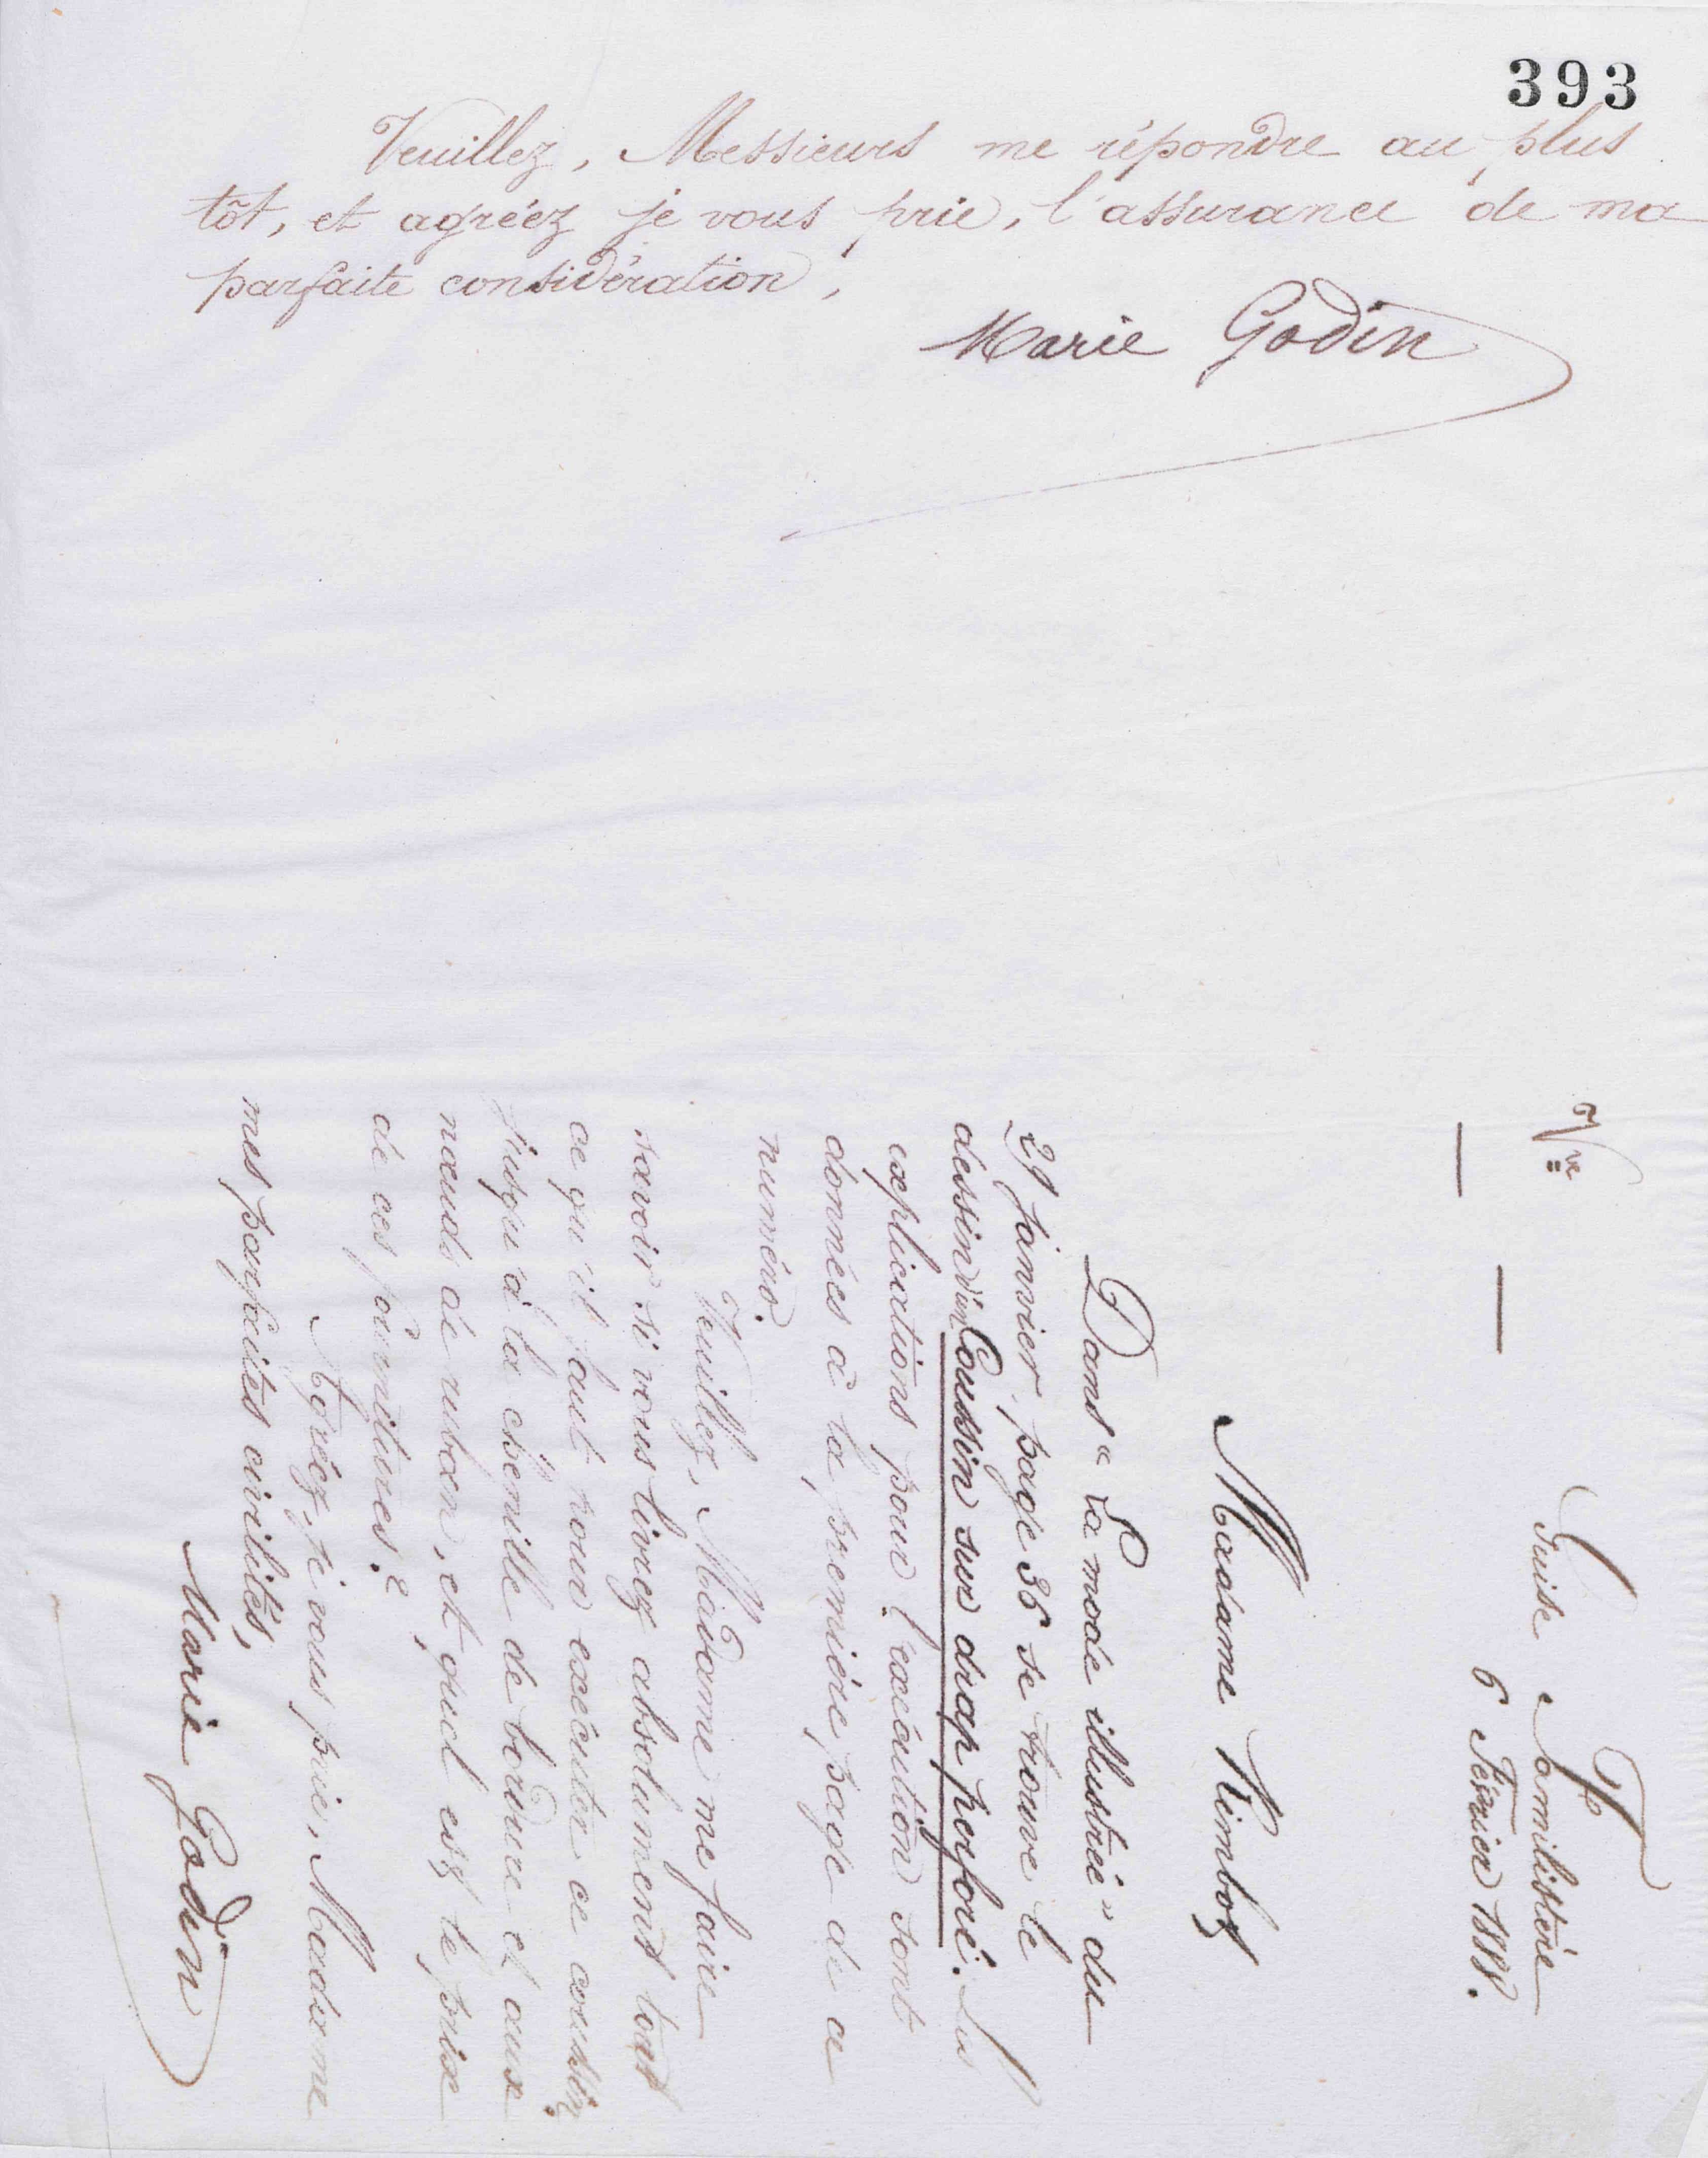 393
Veuillez, Messieurs me répondre au plus
tôt, et agréez je vous prie, l'assurance de ma
parfaite considération,
Marie Godin
Guise Familistère
6 Février 1888.
Madame Kimbot
Dans "La mode illustrée" du
29 janvier, page 36 se trouve le
dessin d'un Coussin sur drap perforé. Les
explications pour l'exécution sont
données à la première page de ce
numéro.
Veuillez, Madame me faire
savoir si vous livrez absolument tout
ce qu'il faut pour exécuter ce coussin
jusqu'à la chenille de bordure et aux
nœuds de ruban, et quel est le prix
de ces fournitures?
Agréez, je vous prie, Madame
mes parfaites civilités,
Marie Godin